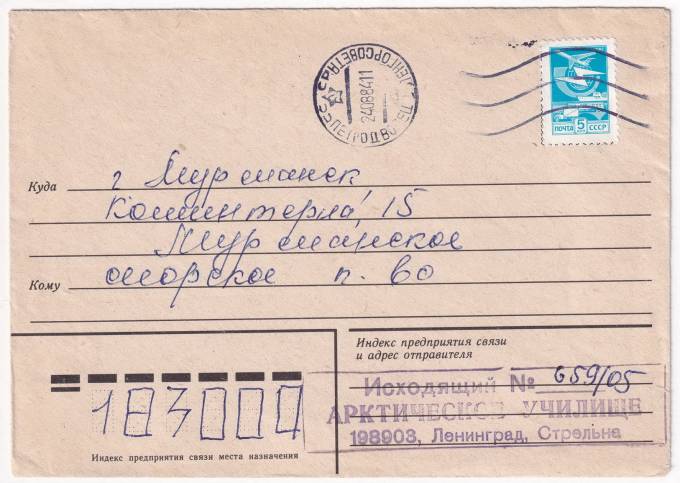 СССР ПЕТРОДВО ЛЕНГОРСОВЕТА
24088411
ПОЧТА 5 СССР
Куда г Мурманск
Коминтерна, 15
Мурманское
Кому морское п-во
Индекс предприятия связи
и адрес отправителя
Исходящий № 659/05
АРКТИЧЕСКОЕ УЧИЛИЩЕ
198903, Ленинград, Стрельна
183000
Индекс предприятия связи места назначения